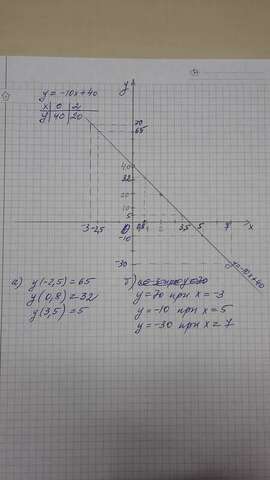 y = -10x+40
x | 0 | 2
y | 40 | 20
y
70
65
40
32
20
10
5
-3 -2,5 0 0,8 1 2 3,5 5 7 x
-10
-30
y=-10x+40
а) y(-2,5) = 65
y(0,8) = 32
y(3,5) = 5
б)
y = 70 при x = -3
y = -10 при x = 5
y = -30 при x = 7